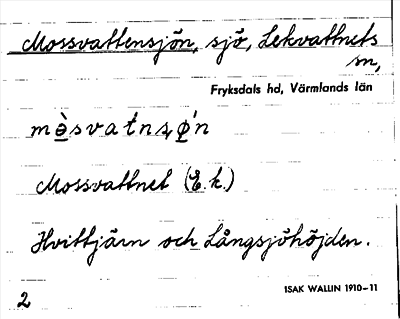 Mossvattensjön, sjö, Lekvattnets
sn,
Fryksdals hd, Värmlands län
mè̱svatnsǿ̱n
Mossvattnet (E.k.)
Hvittjärn och Långsjöhöjden.
ISAK WALLIN 1910–11
2